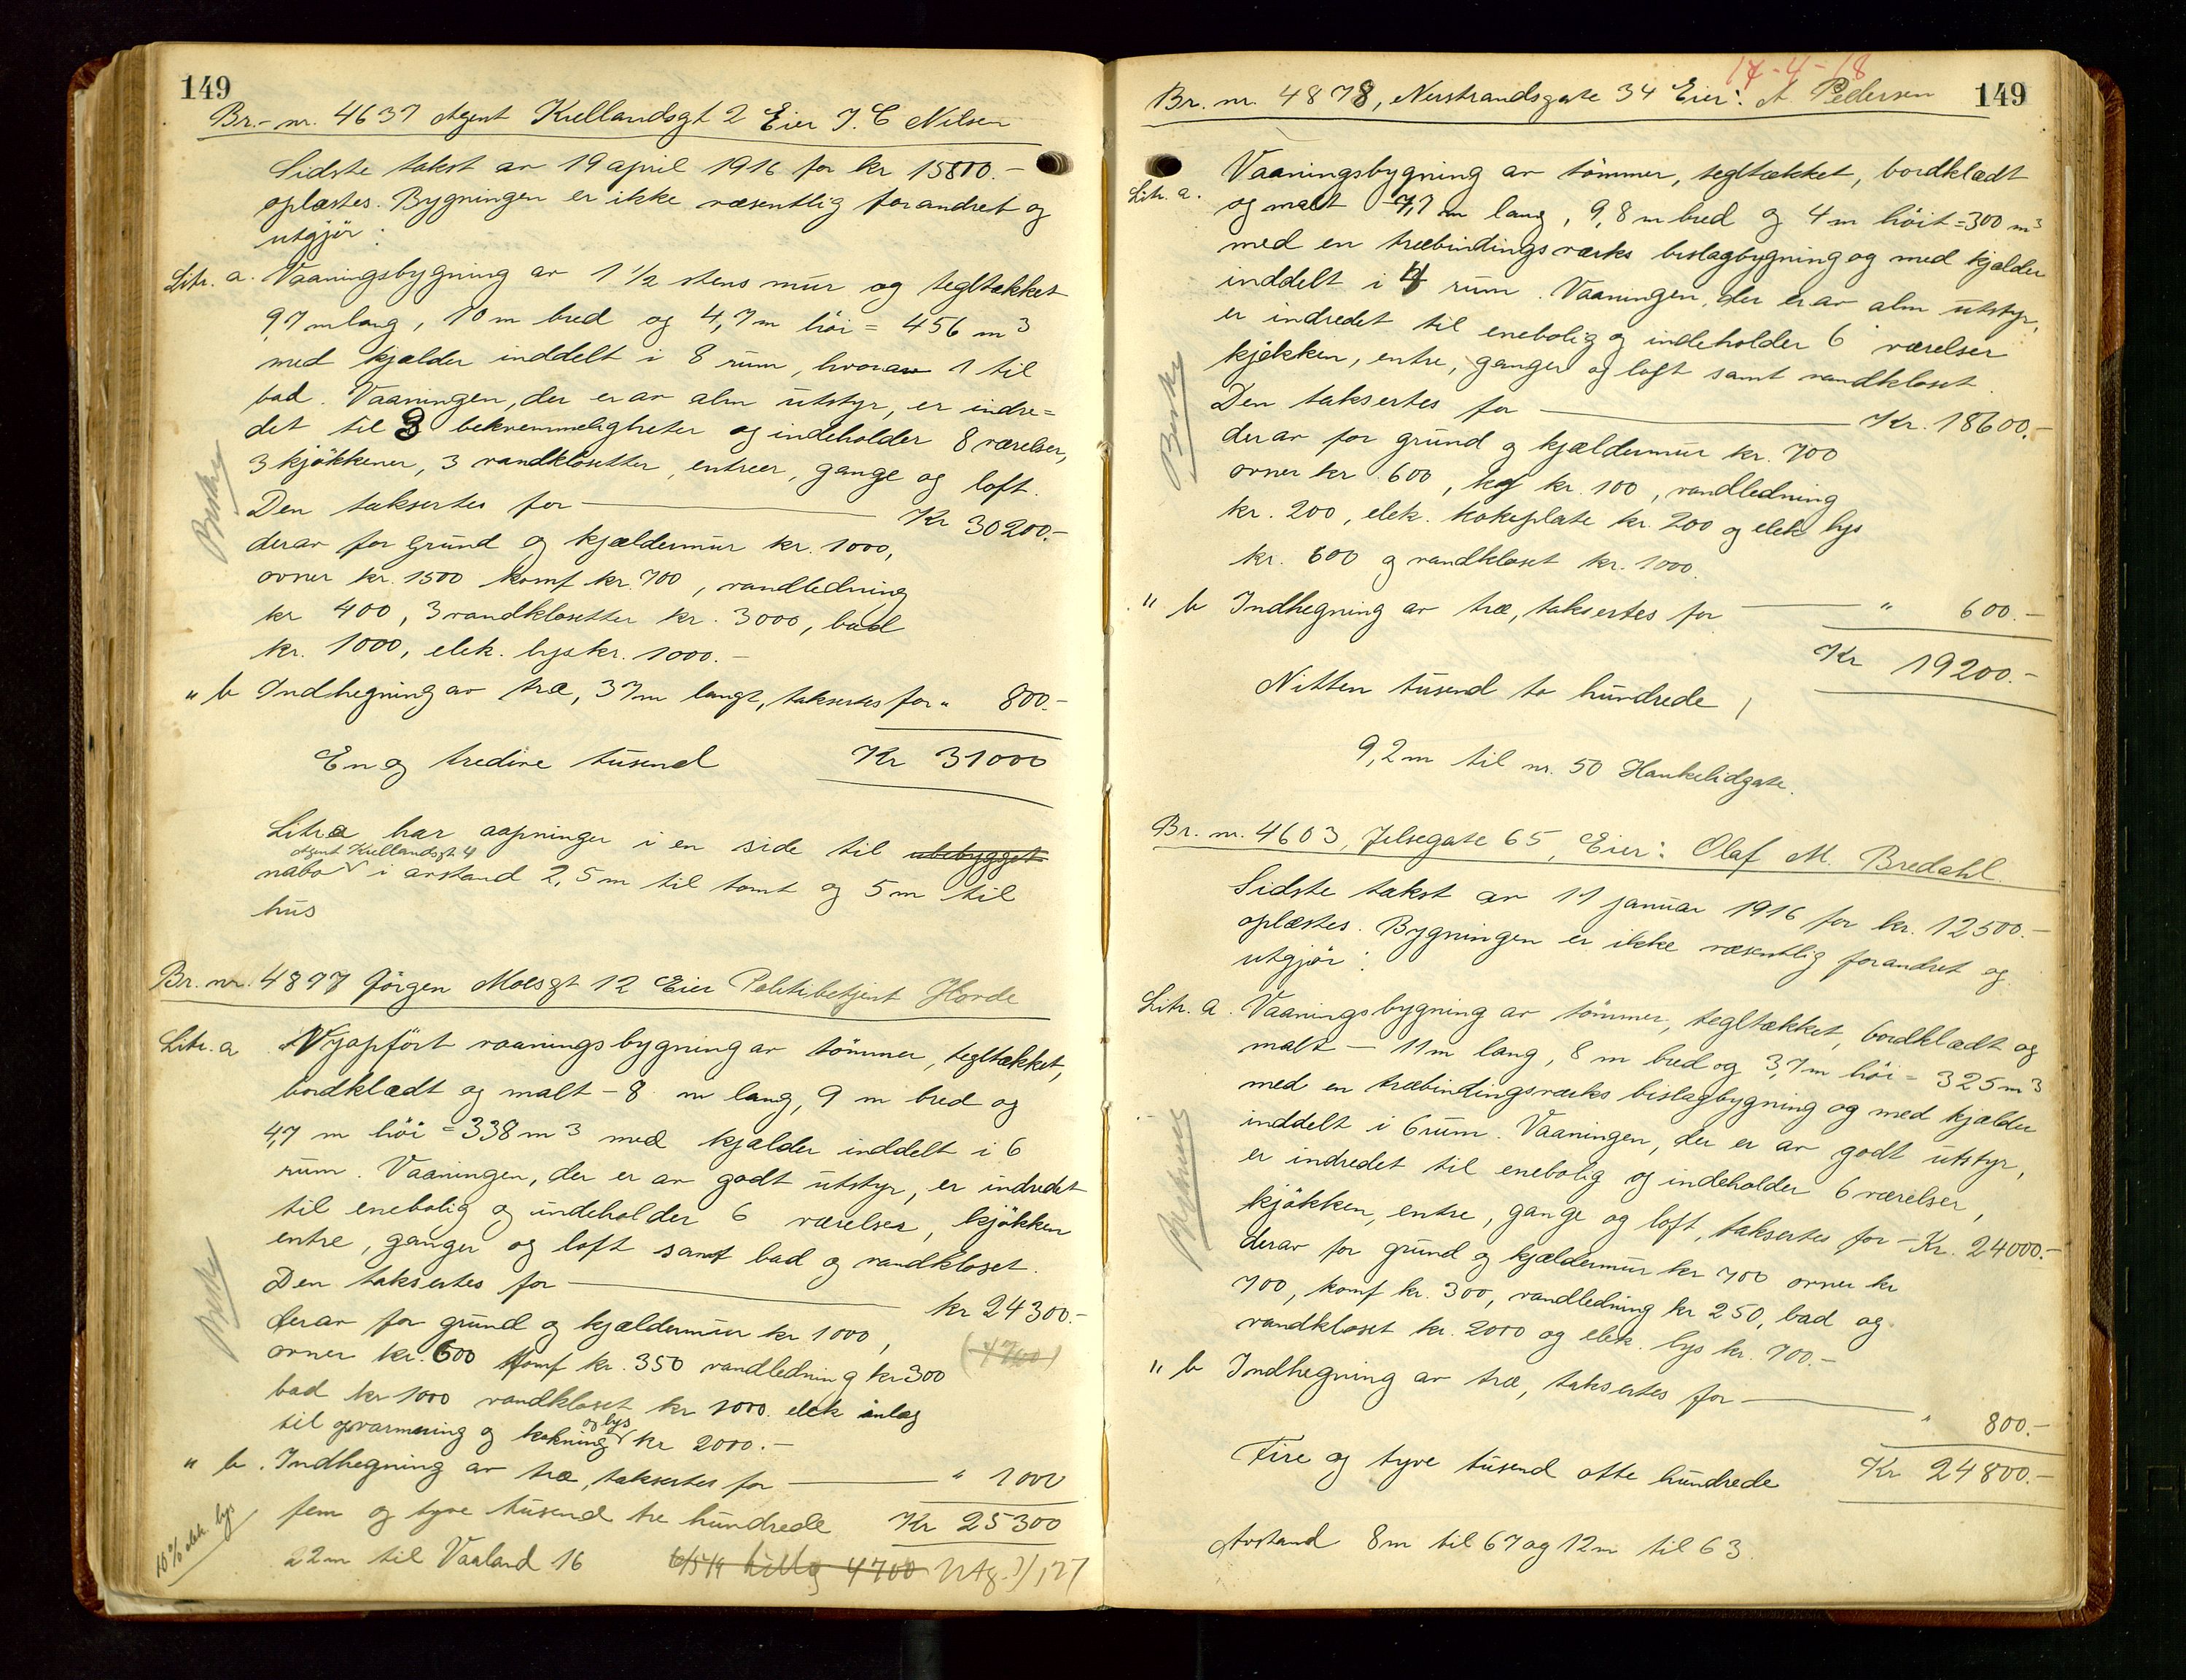 149
Br.- nr. 4637 Agent Kiellandsgt 2 Eier J. C Nilsen
Sidste takst av 19 april 1916 for kr 15800.-
oplæstes. Bygningen er ikke væsentlig forandret og
utgjör:
Litr. a. Vaaningsbygning av 1 1/2 stens mur og tegltækket
9,7 m lang, 10 m bred og 4,7 m höi = 456 m3
med kjælder inddelt i 8 rum, hvorav 1 til
bad. Vaaningen, der er av alm utstyr, er indre=
det til 3 bekvemmeligheter og indeholder 8 værelser,
3 kjökkener, 3 vandklosetter, entreer, gange og loft.
Den taksertes for Kr 30200.-
derav for grund og kjældermur kr. 1000,
ovner kr. 1500 komf kr. 700, vandledning
kr 400, 3 vandklosetter kr. 3000, bad
kr. 1000, elek. lys kr. 1000.-
" b Indhegning av træ, 37m langt, taksertes for " 800.-
En og tredive tusend Kr 31000
Litra har aapninger i en side til ubebygget
Agent Kiellandsgt 4
nabo i avstand 2,5 m til tomt og 5 m til
hus
Br. nr. 4897 Jörgen Moesgt 12 Eier Politibetjent Horde
Litr. a Nyopfört vaaningsbygning av tömmer, tegltækket,
bordklædt og malt - 8 m lang, 9 m bred og
4,7 m höi = 338 m3 med kjælder inddelt i 6
rum. Vaaningen, der er av godt utstyr, er indredet
til enebolig og indeholder 6 værelser, kjökken
entre, ganger og loft samt bad og vandkloset.
Den taksertes for kr 24300.-
derav for grund og kjældermur kr 1000,
(4700)
ovner kr. 600 Komf kr. 350 vandledning kr 300
bad kr 1000 vandkloset kr 1000. elek inlæg
og lys
til opvarmning og kokning kr 2000.-
" b. Indhegning av træ, taksertes for " 1000
fem og tyve tusend tre hundrede Kr 25300
10% elek. lys
22m til Vaaland 16 4700
149
17-4-18
Br. nr. 4878, Nerstrandsgate 34 Eier: A. Pedersen
Litr. a. Vaaningsbygning av tömmer, tegltækket, bordklædt
og malt - 7,7 m lang, 9,8 m bred og 4 m höit = 300 m3
med en træbindingsverks bislagbygning og med kjælder
inddelt i 4 rum. Vaaningen, der er av alm utstyr,
er indredet til enebolig og indeholder 6 værelser
kjökken, entre, ganger og loft samt vandkloset.
Den taksertes for Kr. 18600.-
derav for grund og kjældermur kr. 700
ovner kr. 600, kg kr. 100, vandledning
kr. 200, elek. kokeplate kr. 200 og elek lys
kr. 600 og vandkloset kr. 1000.
" b Indhegning av træ, taksertes for " 600.-
Kr 19200.-
Nitten tusend to hundrede
9,2 m til nr. 50 Haukelidgate.
Br. nr. 4603, Jelsegate 65, Eier: Olaf M. Bredahl.
Sidste takst av 11 januar 1916 for kr. 12500.-
oplæstes. Bygningen er ikke væsentlig forandret og
utgjör:
Litr. a. Vaaningsbygning av tömmer, tegltækket, bordklædt og
malt - 11m lang, 8 m bred og 3,7 m höi = 325 m3
med en træbindingsverks bislagbygning og med kjælder
inddelt i 6 rum. Vaaningen, der er av godt utstyr,
er indredet til enebolig og indeholder 6 værelser,
kjökken, entre, gange og loft, taksertes for - Kr. 24000.-
derav for grund og kjældermur kr 700 ovner kr
700, komf kr. 300, vandledning kr 250, bad og
vandkloset kr. 2000 og elek. lys kr. 700.-
" b Indhegning av træ, taksertes for " 800.-
Fire og tyve tusend otte hundrede Kr 24800.-
Avstand 8m til 67 og 12m til 63.